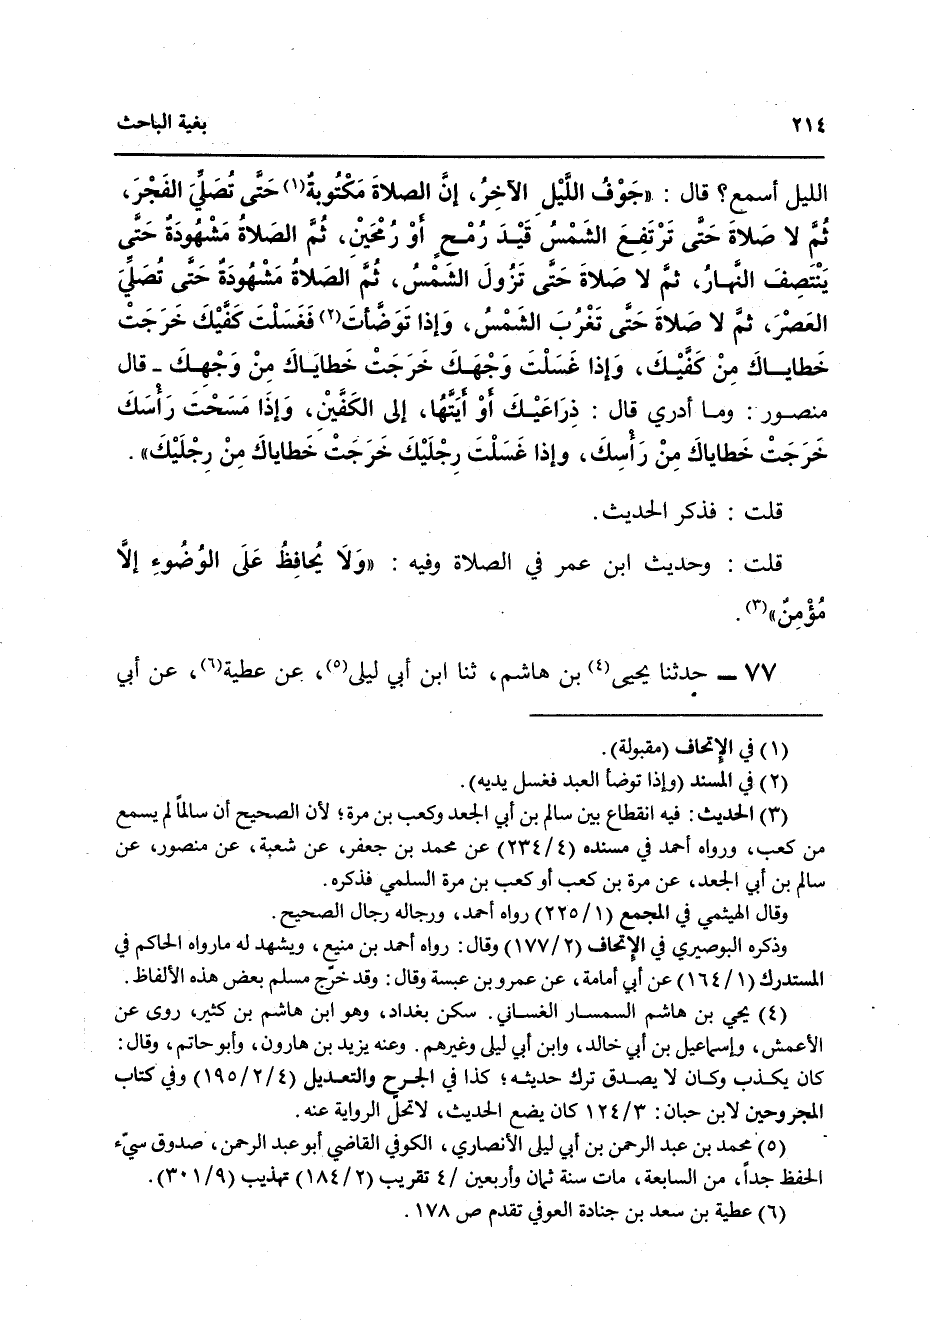 ٢١٤
بغية الباحث
الليل أسمع؟ قال : «جَوْفُ اللَّيْلِ الآخِرُ، إنَّ الصلاةَ مَكْتُوبةٌ(١) حَتَّى تُصَلِّيَ الفَجْرَ،
ثُمَّ لا صَلاةَ حَتَّى تَرْتَفِعَ الشَّمْسُ قَيْدَ رُمْحٍ أَوْ رُمْحَيْنِ، ثُمَّ الصلاةُ مَشْهُودَةٌ حَتَّى
يَنْتَصِفَ النَّهارُ، ثمَّ لا صَلاةَ حَتَّى تَزُولَ الشَّمْسُ، ثُمَّ الصلاةُ مَشْهُودَةٌ حَتَّى تُصَلِّيَ
العَصْرَ، ثمَّ لا صَلاةَ حَتَّى تَغْرُبَ الشَّمْسُ، وَإذا تَوَضَّأت(٢) فَغَسَلْتَ كَفَّيْكَ خَرَجَتْ
خَطايـاكَ مِنْ كَفَّيْـكَ، وَإذا غَسَلْتَ وَجْهَـكَ خَرَجَتْ خَطايَـاكَ مِنْ وَجْهِـكَ ـ قال
منصـور : ومـا أدري قال : ذِرَاعَيْـكَ أَوْ أَيَتَّهُا، إلى الكَفَّيْنِ، وَإذَا مَسَحْتَ رَأْسَكَ
خَرَجَتْ خَطاياكَ مِنْ رَأْسِكَ، وإذا غَسَلْتَ رِجْلَيْكَ خَرَجَتْ خَطاياكَ مِنْ رِجْلَيْكَ» .
قلت : فذكر الحديث .
قلت : وحديث ابن عمر في الصلاة وفيه : «وَلَا يُحافِظُ عَلَى الوُضُوءِ إلَّا
مُؤْمِنٌ»(٣) .
٧٧ ـ حدثنا يحيى(٤) بن هاشم، ثنا ابن أبي ليلى(٥)، عن عطية(٦)، عن أبي
(١) في الإتحاف (مقبولة) .
(٢) في المسند (وإذا توضأ العبد فغسل يديه) .
(٣) الحديث : فيه انقطاع بين سالم بن أبي الجعد وكعب بن مرة؛ لأن الصحيح أن سالماً لم يسمع
من كعب، ورواه أحمد في مسنده (٤/ ٢٣٤) عن محمد بن جعفر، عن شعبة، عن منصور، عن
سالم بن أبي الجعد، عن مرة بن كعب أو كعب بن مرة السلمي فذكره.
وقال الهيثمي في المجمع (١/ ٢٢٥) رواه أحمد، ورجاله رجال الصحيح.
وذكره البوصيري في الإتحاف (٢/ ١٧٧) وقال: رواه أحمد بن منيع، ويشهد له مارواه الحاكم في
المستدرك (١/ ١٦٤) عن أبي أمامة، عن عمرو بن عبسة وقال: وقد خرّج مسلم بعض هذه الألفاظ.
(٤) يحي بن هاشم السمسار الغساني. سكن بغداد، وهو ابن هاشم بن كثير، روى عن
الأعمش، وإسماعيل بن أبي خالد، وابن أبي ليلى وغيرهم. وعنه يزيد بن هارون، وأبو حاتم، وقال:
كان يكذب وكان لا يصدق ترك حديثه؛ كذا في الجرح والتعديل (٤/ ٢/ ١٩٥) وفي كتاب
المجروحين لابن حبان: ٣/ ١٢٤ كان يضع الحديث، لا تحلّ الرواية عنه.
(٥) محمد بن عبد الرحمن بن أبي ليلى الأنصاري، الكوفي القاضي أبو عبد الرحمن، صدوق سيّء
الحفظ جداً، من السابعة، مات سنة ثمان وأربعين /٤ تقريب (٢/ ١٨٤) تهذيب (٩/ ٣٠١).
(٦) عطية بن سعد بن جنادة العوفي تقدم ص ١٧٨ .